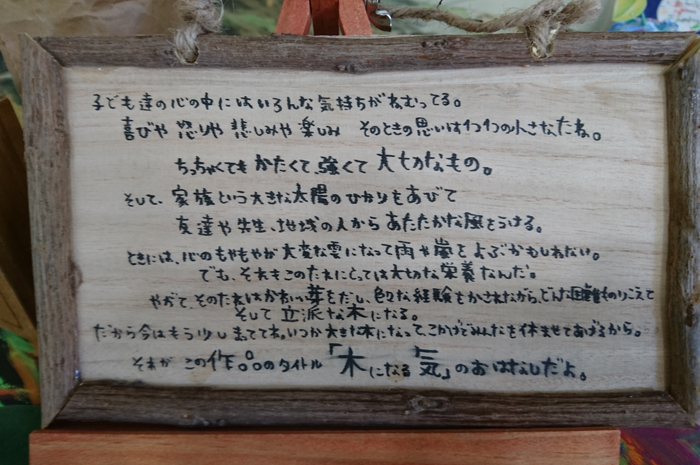 子ども達の心の中にはいろんな気持ちがねむってる。
喜びや怒りや悲しみや楽しみ そのときの思いは1つ1つの小さなたね。
ちっちゃくてもかたくて強くて大切なもの。
そして、家族という大きな太陽のひかりをあびて
友達や先生、地域の人からあたたかな風をうける。
ときには、心のもやもやが大変な雲になって雨や嵐をよぶかもしれない。
でも、それもこのたねにとっては大切な栄養なんだ。
やがて、そのたねはかわいい芽をだし、色々な経験をかさねながら、どんな困難ものりこえて
そして立派な木になる。
だから今はもう少しまっててね。いつか大きな木になって、こかげでみんなを休ませてあげるから。
それがこの作品のタイトル「木になる気」のおはなしだよ。